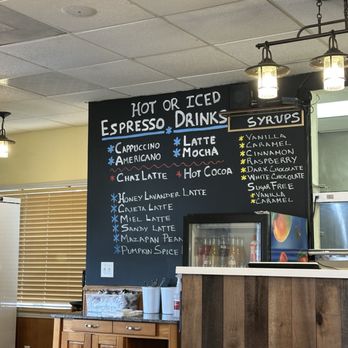 HOT OR ICED
ESPRESSO DRINKS
CAPPUCCINO
AMERICANO
LATTE
MOCHA
CHAI LATTE
HOT COCOA
HONEY LAVANDER LATTE
CAJETA LATTE
MIEL LATTE
SANDY LATTE
MAZAPAN PEAN
PUMPKIN SPICE
SYRUPS
VANILLA
CARAMEL
CINNAMON
RASPBERRY
DARK CHOCOLATE
WHITE CHOCOLATE
SUGAR FREE
VANILLA
CARAMEL